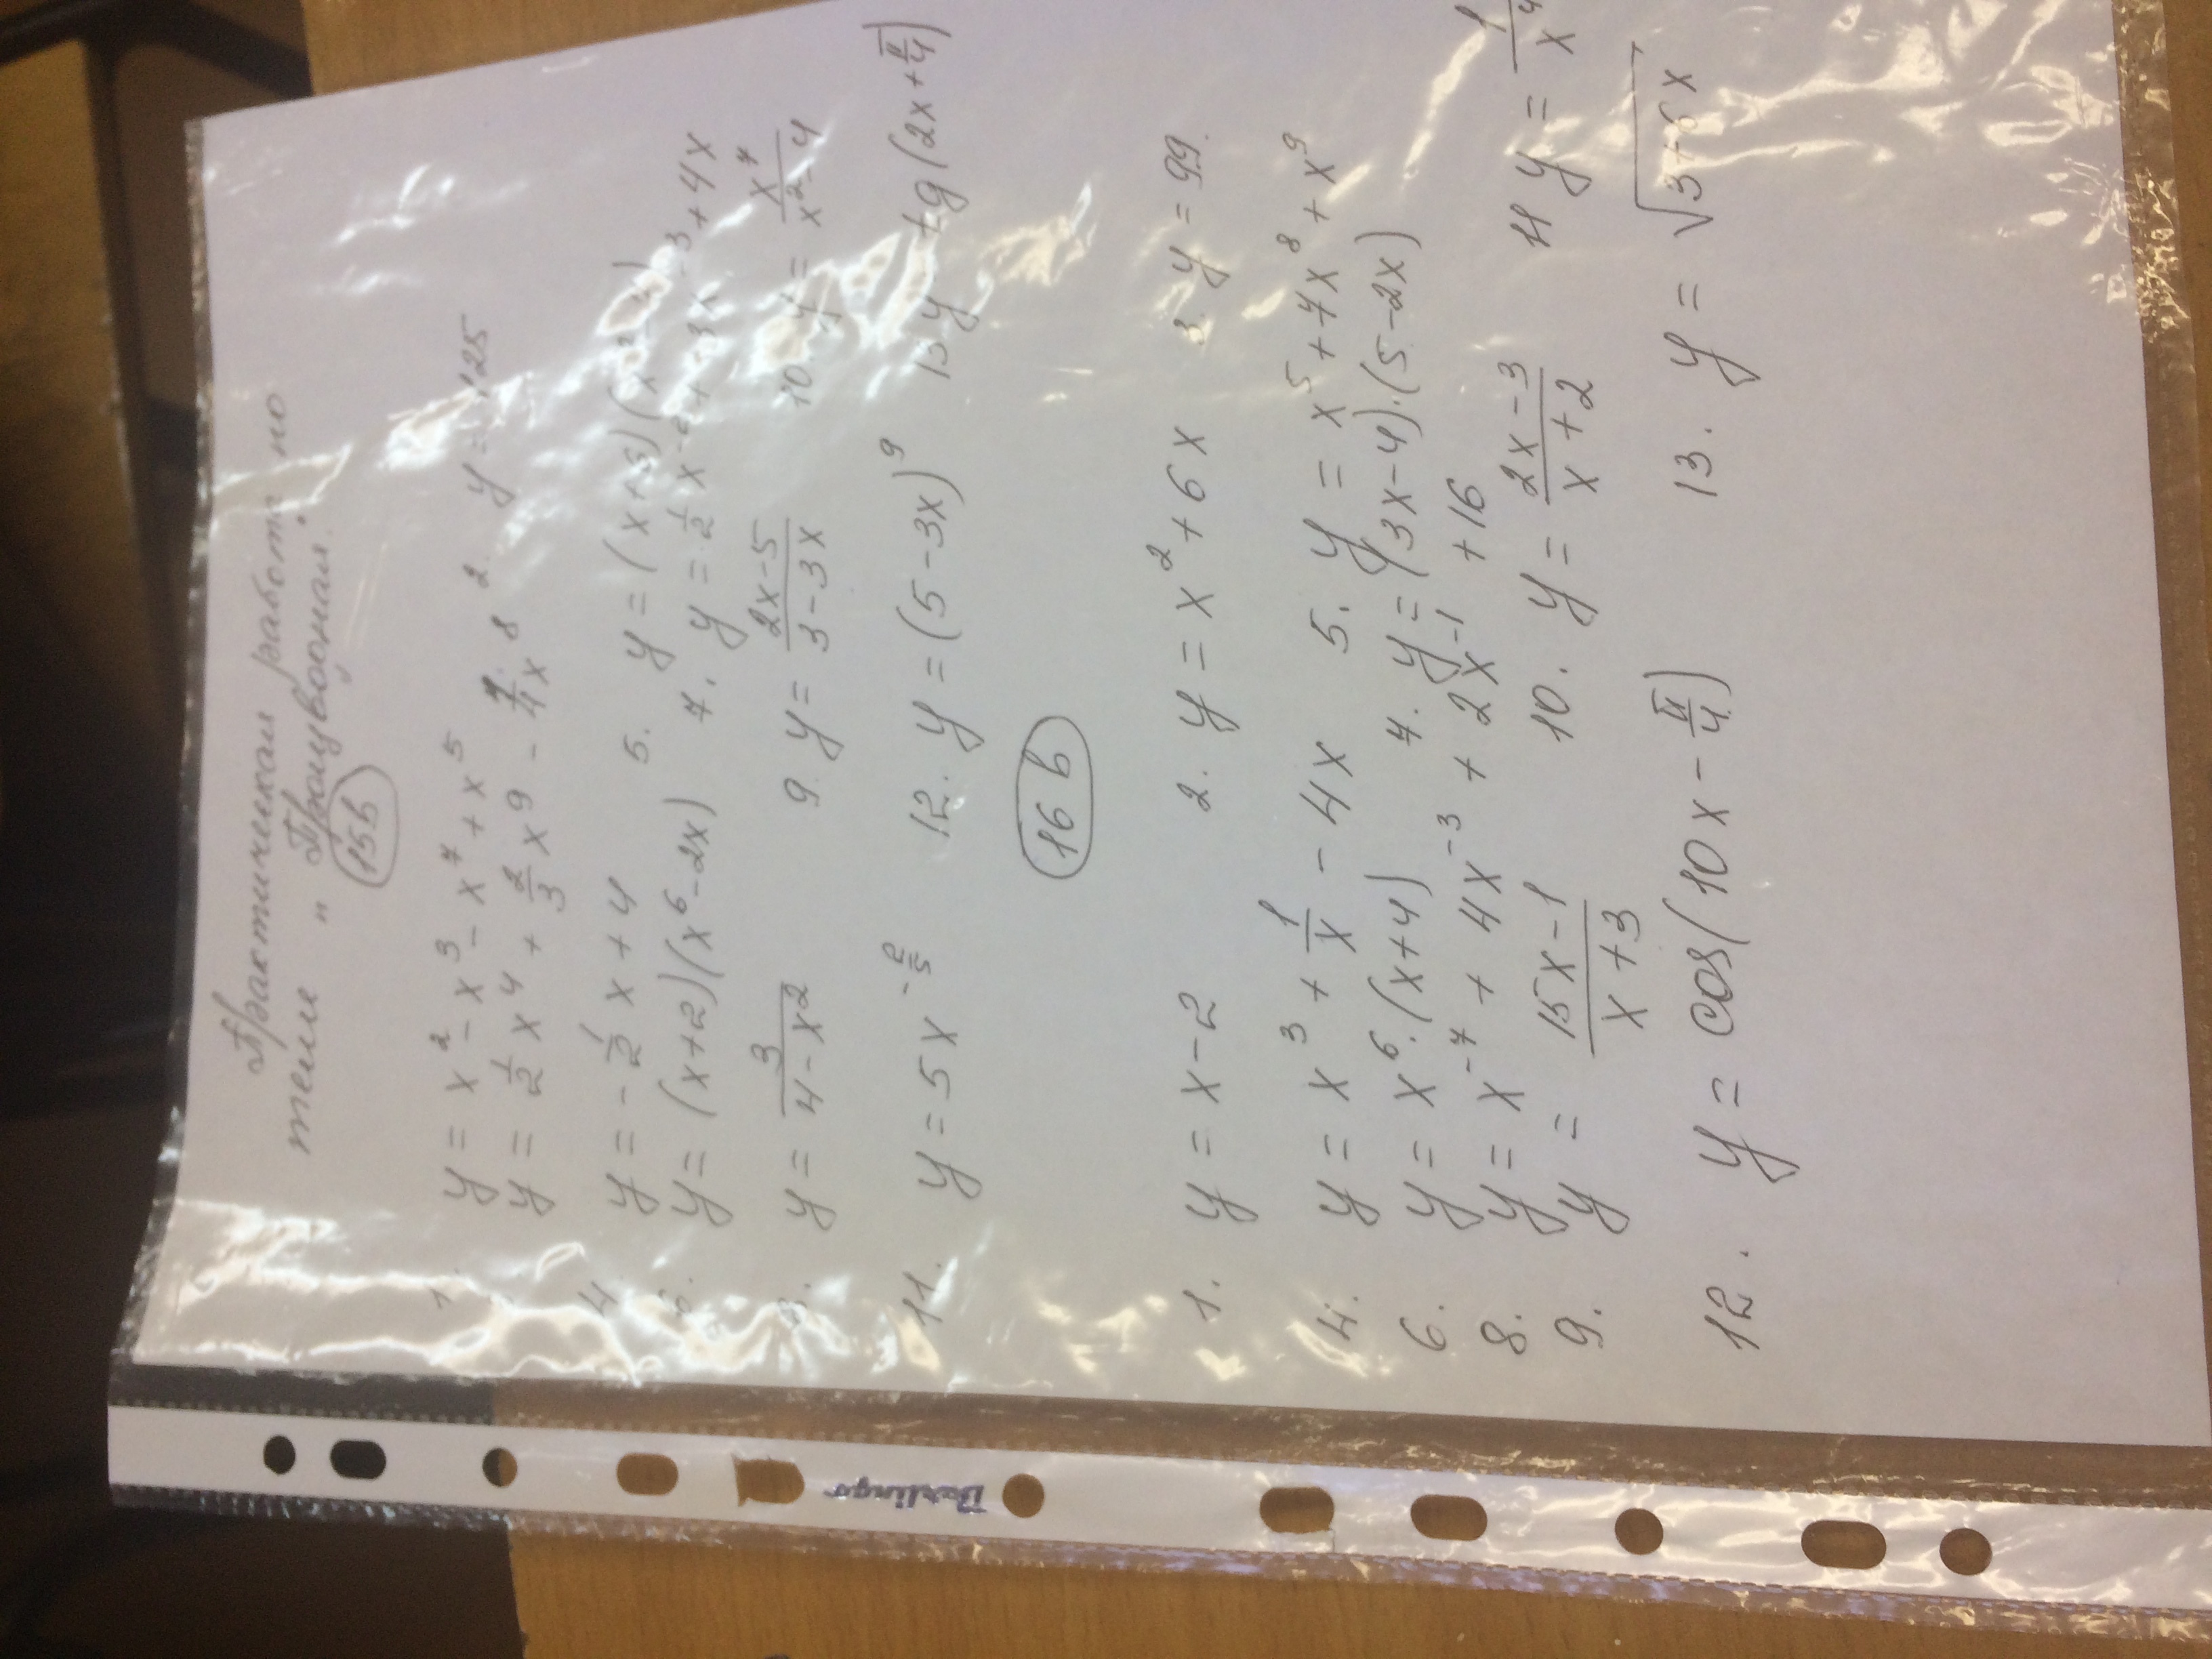 Практическая работа по
теме "Производная".
15в
1. y = x² - x³ - x⁷ + x⁵ 2. y = 125
y = 1/2 x⁴ + 2/3 x⁹ - 7/4 x⁸
4. y = - 1/2 x + 4 5. y = (x+3)(x²
6. y = (x+2)(x⁶-2x) 7. y = 1/2 x + 4x
y = 3/(4-x²) 9. y = (2x-5)/(3-3x) 10. y = x⁷/(x²-4)
11. y = 5x^(-2/5) 12. y = (5-3x)⁹ 13 y tg(2x+π/4)
16 в
1. y = x-2 2. y = x² + 6x 3. y = 99.
4. y = x³ + 1/x - 4x 5. y = x⁵ + 7x⁸ + x⁹
6. y = x⁶·(x+4) 7. y = (3x-4)·(5-2x)
8. y = x⁻⁷ + 4x⁻³ + 2x⁻¹ + 16
9. y = (15x-1)/(x+3) 10. y = (2x-3)/(x+2) 11 y = 1/x⁴
12. y = cos(10x - π/4) 13. y = √(3+6x)
Berlingo